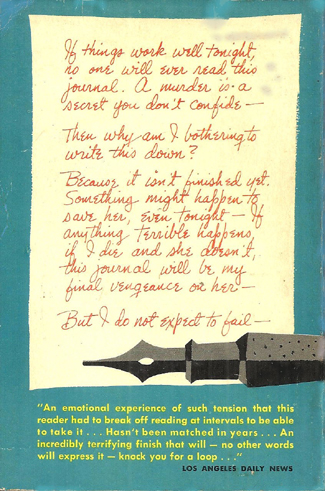 If things work well tonight,
no one will ever read this
journal. A murder is a
secret you don't confide —
Then why am I bothering to
write this down?
Because it isn't finished yet.
Something might happen to
save her, even tonight — If
anything terrible happens,
if I die and she doesn't,
this journal will be my
final vengeance on her —
But I do not expect to fail —
"An emotional experience of such tension that this
reader had to break off reading at intervals to be able
to take it . . . Hasn't been matched in years . . . An
incredibly terrifying finish that will — no other words
will express it — knock you for a loop . . ."
LOS ANGELES DAILY NEWS